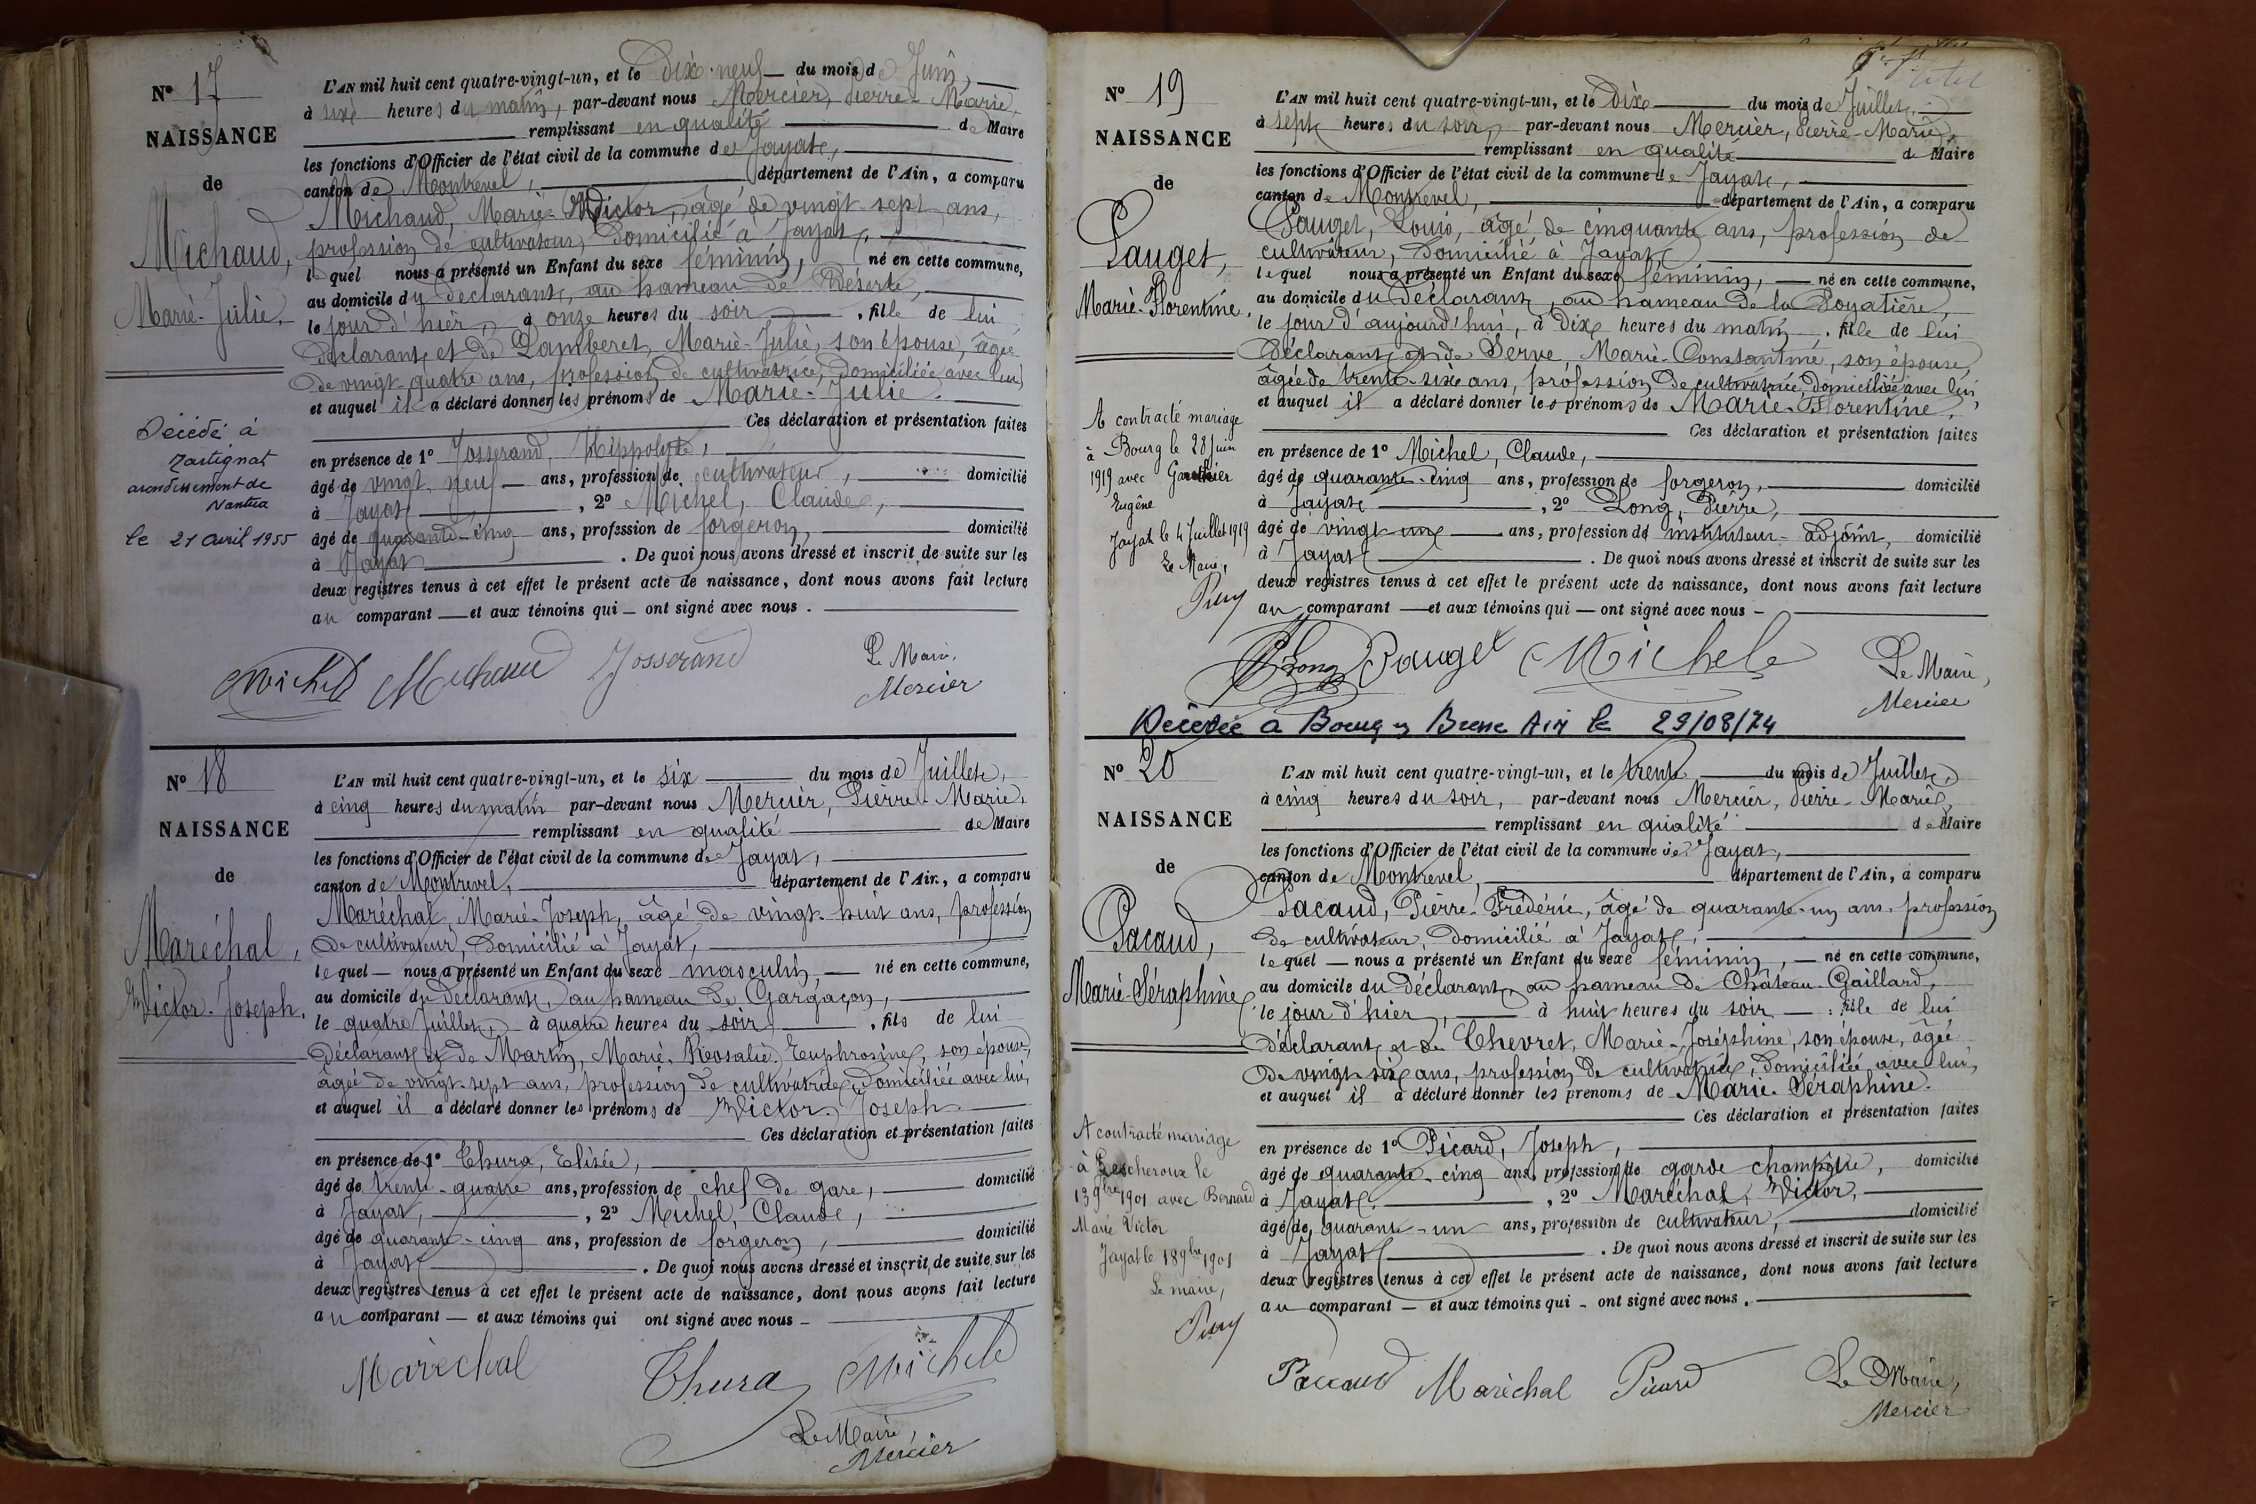 N° 17
NAISSANCE
de
Michaud,
Marie-Julie.
Décédé à
Martignat
arrondissement de
Nantua
le 21 avril 1955
L'AN mil huit cent quatre-vingt-un, et le Dix-neuf du mois de Juin,
à six heures du matin, par-devant nous Mercier, Pierre-Marie,
remplissant en qualité de Maire
les fonctions d'Officier de l'état civil de la commune de Jayat,
canton de Montrevel, département de l'Ain, a comparu
Michaud, Marie-Victor, âgé de vingt-sept ans,
profession de cultivateur, domicilié à Jayat,
lequel nous a présenté un Enfant du sexe féminin, né en cette commune,
au domicile du déclarant, au hameau de Déserte,
le jour d'hier, à onze heures du soir, fille de lui
déclarant et de Lamberet, Marie-Julie, son épouse, âgée
de vingt-quatre ans, profession de cultivatrice, domiciliée avec lui,
et auquel il a déclaré donner les prénoms de Marie-Julie.
Ces déclaration et présentation faites
en présence de 1° Josserand, Hippolyte,
âgé de vingt-neuf ans, profession de cultivateur, domicilié
à Jayat, 2° Michel, Claude,
âgé de quarante-cinq ans, profession de forgeron, domicilié
à Jayat. De quoi nous avons dressé et inscrit de suite sur les
deux registres tenus à cet effet le présent acte de naissance, dont nous avons fait lecture
au comparant et aux témoins qui ont signé avec nous.
Michel Michaud Josserand
Le Maire,
Mercier
N° 18
NAISSANCE
de
Maréchal,
Victor-Joseph.
L'AN mil huit cent quatre-vingt-un, et le six du mois de Juillet,
à cinq heures du matin par-devant nous Mercier, Pierre-Marie,
remplissant en qualité de Maire
les fonctions d'Officier de l'état civil de la commune de Jayat,
canton de Montrevel, département de l'Ain, a comparu
Maréchal, Marie-Joseph, âgé de vingt-huit ans, profession
de cultivateur, domicilié à Jayat,
lequel nous a présenté un Enfant du sexe masculin, né en cette commune,
au domicile du déclarant, au hameau de Gargaçon,
le quatre Juillet, à quatre heures du soir, fils de lui
déclarant et de Martin, Marie-Rosalie-Euphrosine, son épouse,
âgée de vingt-sept ans, profession de cultivatrice, domiciliée avec lui,
et auquel il a déclaré donner les prénoms de Victor-Joseph.
Ces déclaration et présentation faites
en présence de 1° Thura, Elisée,
âgé de trente-quatre ans, profession de chef de gare, domicilié
à Jayat, 2° Michel, Claude,
âgé de quarante-cinq ans, profession de forgeron, domicilié
à Jayat. De quoi nous avons dressé et inscrit de suite sur les
deux registres tenus à cet effet le présent acte de naissance, dont nous avons fait lecture
au comparant et aux témoins qui ont signé avec nous
Maréchal Thura Michel
Le Maire,
Mercier
N° 19
NAISSANCE
de
Pauget,
Marie-Florentine.
A contracté mariage
à Bourg le 28 Juin
1919 avec
Eugène
Jayat le 4 Juillet 1919
Le Maire,
L'AN mil huit cent quatre-vingt-un, et le Dix du mois de Juillet,
à sept heures du soir, par-devant nous Mercier, Pierre-Marie,
remplissant en qualité de Maire
les fonctions d'Officier de l'état civil de la commune de Jayat,
canton de Montrevel, département de l'Ain, a comparu
Pauget, Louis, âgé de cinquante ans, profession de
cultivateur, domicilié à Jayat,
lequel nous a présenté un Enfant du sexe féminin, né en cette commune,
au domicile du déclarant, au hameau de la Poyatière,
le jour d'aujourd'hui, à Dix heures du matin, fille de lui
déclarant et de Serve, Marie-Constantine, son épouse,
âgée de trente-six ans, profession de cultivatrice, domiciliée avec lui,
et auquel il a déclaré donner les prénoms de Marie-Florentine.
Ces déclaration et présentation faites
en présence de 1° Michel, Claude,
âgé de quarante-cinq ans, profession de forgeron, domicilié
à Jayat, 2° Long, Pierre,
âgé de vingt-un ans, profession de instituteur-adjoint, domicilié
à Jayat. De quoi nous avons dressé et inscrit de suite sur les
deux registres tenus à cet effet le présent acte de naissance, dont nous avons fait lecture
au comparant et aux témoins qui ont signé avec nous
PLong Pauget Michel
Le Maire,
Mercier
Décédée à Bourg en Bresse Ain le 29/08/74
N° 20
NAISSANCE
de
Pacaud,
Marie-Séraphine
A contracté mariage
à Lescheroux le
13 9bre 1901 avec Bernard
Marie Victor
Jayat le 18 9bre 1901
Le maire,
L'AN mil huit cent quatre-vingt-un, et le trente du mois de Juillet,
à cinq heures du soir, par-devant nous Mercier, Pierre-Marie,
remplissant en qualité de Maire
les fonctions d'Officier de l'état civil de la commune de Jayat,
canton de Montrevel, département de l'Ain, a comparu
Pacaud, Pierre-Frédéric, âgé de quarante-un ans, profession
de cultivateur, domicilié à Jayat,
lequel nous a présenté un Enfant du sexe féminin, né en cette commune,
au domicile du déclarant, au hameau de Château-Gaillard,
le jour d'hier, à huit heures du soir, fille de lui
déclarant et de Chevret, Marie-Joséphine, son épouse, âgée
de vingt-six ans, profession de cultivatrice, domiciliée avec lui,
et auquel il a déclaré donner les prénoms de Marie-Séraphine.
Ces déclaration et présentation faites
en présence de 1° Picard, Joseph,
âgé de quarante-cinq ans, profession de garde champêtre, domicilié
à Jayat, 2° Maréchal, Victor,
âgé de quarante-un ans, profession de cultivateur, domicilié
à Jayat. De quoi nous avons dressé et inscrit de suite sur les
deux registres tenus à cet effet le présent acte de naissance, dont nous avons fait lecture
au comparant et aux témoins qui ont signé avec nous.
Paccaud Maréchal Picard
Le Maire,
Mercier